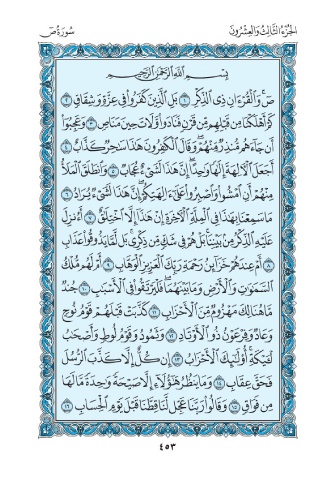 الجُزْءُ الثَّالِثُ وَالعِشْرُونَ
سُورَةُ صٓ
بِسْمِ اللَّهِ الرَّحْمَٰنِ الرَّحِيمِ
صٓ ۚ وَالْقُرْآنِ ذِي الذِّكْرِ ١ بَلِ الَّذِينَ كَفَرُوا فِي عِزَّةٍ وَشِقَاقٍ ٢
كَمْ أَهْلَكْنَا مِن قَبْلِهِم مِّن قَرْنٍ فَنَادَوا وَّلَاتَ حِينَ مَنَاصٍ ٣ وَعَجِبُوا
أَن جَاءَهُم مُّنذِرٌ مِّنْهُمْ ۖ وَقَالَ الْكَافِرُونَ هَٰذَا سَاحِرٌ كَذَّابٌ ٤
أَجَعَلَ الْآلِهَةَ إِلَٰهًا وَاحِدًا ۖ إِنَّ هَٰذَا لَشَيْءٌ عُجَابٌ ٥ وَانطَلَقَ الْمَلَأُ
مِنْهُمْ أَنِ امْشُوا وَاصْبِرُوا عَلَىٰ آلِهَتِكُمْ ۖ إِنَّ هَٰذَا لَشَيْءٌ يُرَادُ ٦
مَا سَمِعْنَا بِهَٰذَا فِي الْمِلَّةِ الْآخِرَةِ إِنْ هَٰذَا إِلَّا اخْتِلَاقٌ ٧ أَءُنزِلَ
عَلَيْهِ الذِّكْرُ مِن بَيْنِنَا ۚ بَلْ هُمْ فِي شَكٍّ مِّن ذِكْرِي ۖ بَل لَّمَّا يَذُوقُوا عَذَابِ
٨ أَمْ عِندَهُمْ خَزَائِنُ رَحْمَةِ رَبِّكَ الْعَزِيزِ الْوَهَّابِ ٩ أَمْ لَهُم مُّلْكُ
السَّمَاوَاتِ وَالْأَرْضِ وَمَا بَيْنَهُمَا ۖ فَلْيَرْتَقُوا فِي الْأَسْبَابِ ١٠ جُندٌ
مَّا هُنَالِكَ مَهْزُومٌ مِّنَ الْأَحْزَابِ ١١ كَذَّبَتْ قَبْلَهُمْ قَوْمُ نُوحٍ
وَعَادٌ وَفِرْعَوْنُ ذُو الْأَوْتَادِ ١٢ وَثَمُودُ وَقَوْمُ لُوطٍ وَأَصْحَابُ
لْـَٔيْكَةِ ۚ أُولَٰئِكَ الْأَحْزَابُ ١٣ إِن كُلٌّ إِلَّا كَذَّبَ الرُّسُلَ
فَحَقَّ عِقَابِ ١٤ وَمَا يَنظُرُ هَٰؤُلَاءِ إِلَّا صَيْحَةً وَاحِدَةً مَّا لَهَا
مِن فَوَاقٍ ١٥ وَقَالُوا رَبَّنَا عَجِّل لَّنَا قِطَّنَا قَبْلَ يَوْمِ الْحِسَابِ ١٦
٤٥٣